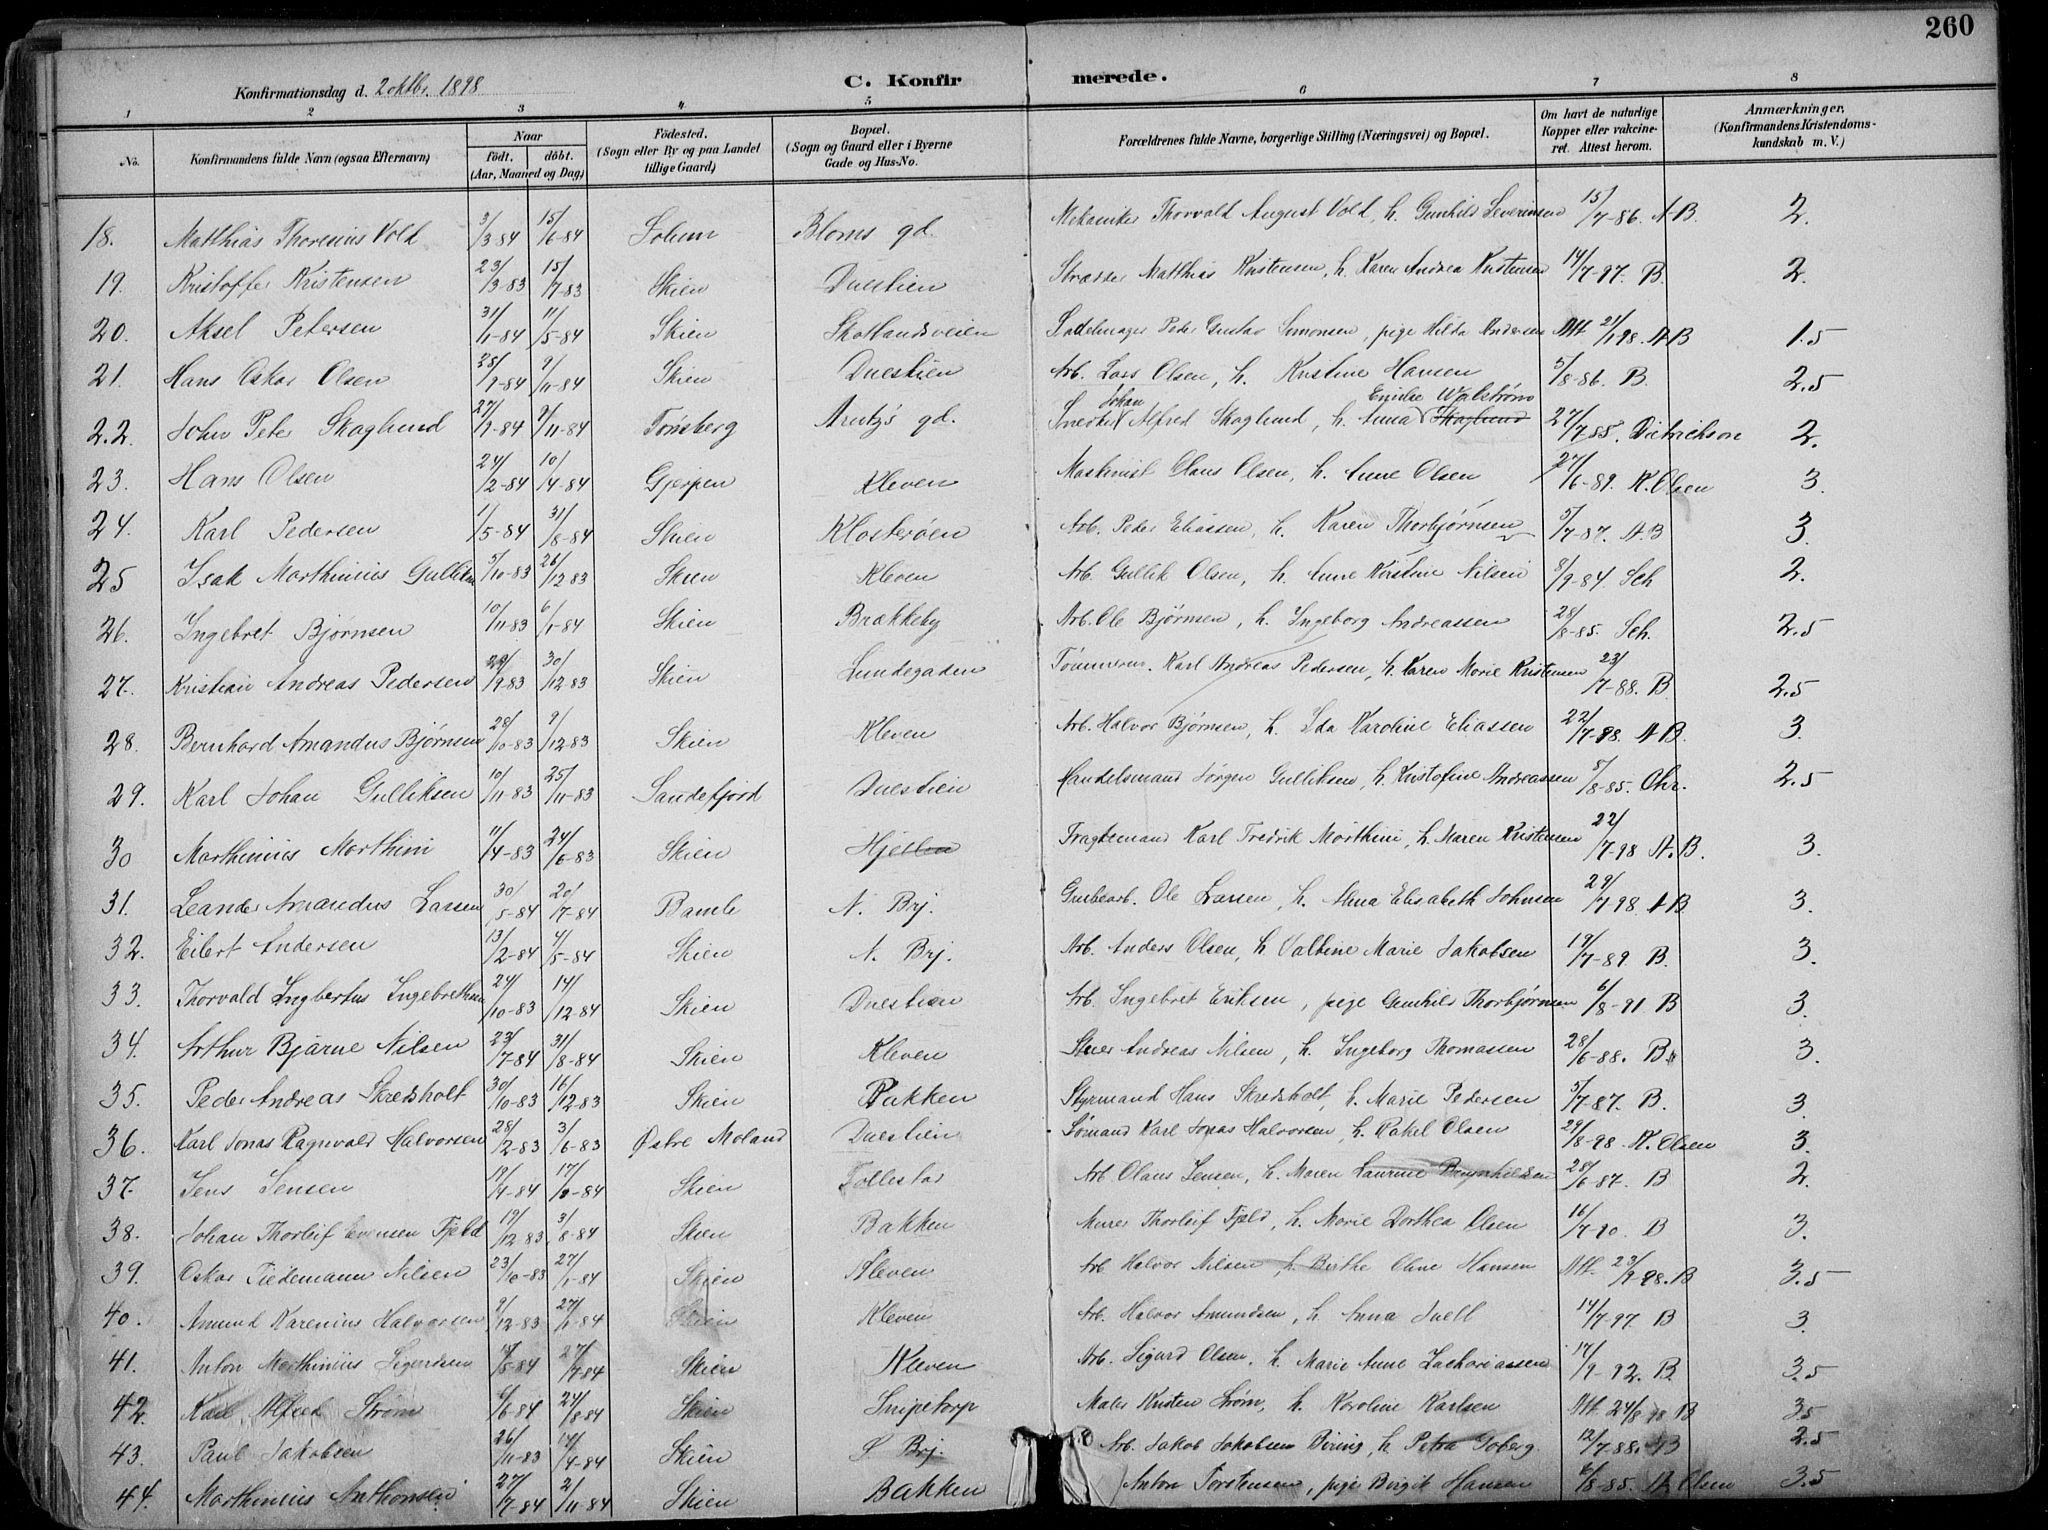 260
Konfirmationsdag d. 2 oktbr. 1898
C. Konfirmerede.
1 2 3 4 5 6 7 8
No. Konfirmandens fulde Navn (ogsaa Efternavn) Naar födt. döbt. (Aar, Maaned og Dag) Födested. (Sogn eller By og paa Landet tillige Gaard) Bopæl. (Sogn og Gaard eller i Byerne Gade og Hus-No. Forældrenes fulde Navne, borgerlige Stilling (Næringsvei) og Bopæl. Om havt de naturlige Kopper eller vakcineret. Attest herom. Anmærkninger. (Konfirmandens Kristendomskundskab m. V.)
18. Matthias Thoresius Vold 3/3-84 15/6-84 Solum Bloms gd. Mekaniker Thorvald August Vold, h. Gunhild Severinsen 15/7-86. AB. 2.
19. Kristoffer Kristensen 23/3-83 15/7-83 Skien Duestien Matthias Kristensen, h. Karen Andrea Kristensen 14/7-97. B. 2.
20. Aksel Petersen 31/1-84 11/5-84 Skien Skotlandsveien Sadelmager Peder Gustav Simonsen, pige Hilda Andersen Att. 21/1 98. AB 1.5
21. Hans Oskar Olsen 28/9-84 9/11-84 Skien Duestien Arb. Lars Olsen, h. Kristine Hansen 5/8-86. B. 2.5
22. John Peter Skaglund 27/9-84 9/11-84 Tønsberg Arntzs gd. Snedker Johan Alfred Skaglund, h. Anna Emilie Walstrøm Skaglund 27/7 85. Dietrichson 2.
23. Hans Olsen 24/2-84 10/4-84 Gjerpen Kleven Maskinist Claus Olsen, h. Anne Olsen 27/6-89. K. Olsen 3.
24. Karl Pedersen 1/5-84 31/8-84 Skien Klosterøen Arb. Peder Eliassen, h. Karen Thorbjørnsen 5/7-87. AB 3.
25 Isak Marthinius Gulliksen 5/10-83 26/12-83 Skien Kleven Arb. Gullik Olsen, h. Anne Kirstine Nilsen 8/9-84 Sch 2.
26. Ingebret Bjørnsen 10/11-83 6/1-84 Skien Brækkeby Arb. Ole Bjørnsen, h. Ingeborg Andreassen 28/8-85. Sch. 2.5
27. Kristian Andreas Pedersen 29/9-83 30/12-83 Skien Lundegaden Tømmerm. Karl Andreas Pedersen, h. Karen Marie Kristensen 23/7-88. B. 2.5
28. Bernhard Amandus Bjørnsen 28/10-83 9/12-83 Skien Kleven Arb. Halvor Bjørnsen, h. Ida Karoline Eliassen 22/7-98. AB. 3.
29. Karl Johan Gulliksen 10/11-83 25/11-83 Sandefjord Duestien Handelsmand Jørgen Gulliksen, h. Kristofine Andreassen 5/8-85. Chr. 2.5
30 Marthinius Marthini 11/4-83 24/6-83 Skien Hjellen Fragtemand Karl Fredrik Marthini, h. Maren Kristensen 22/7-98 A.B. 3.
31. Leander Amandus Larsen 30/5-84 20/7-84 Bamle N. Brj. Grubearb. Ole Larsen, h. Anna Elisabeth Johnsen 29/7 98. AB 3.
32. Eilert Andersen 13/2-84 4/5-84 Skien N. Brj. Arb. Anders Olsen, h. Valbine Marie Jakobsen 19/7-89. B. 3.
33. Thorvald Ingbertus Ingebrethsen 24/10-83 14/12-84 Skien Duestien Arb. Ingebret Eriksen, pige Gunhild Thorbjørnsen 6/8-91 B 3.
34. Arthur Bjarne Nilsen 23/7-84 31/8-84 Skien Kleven Andreas Nilsen, h. Ingeborg Thomassen 28/6-88. B. 3.
35. Peder Andreas Skredsholt 30/10-83 16/12-83 Skien Bakken Styrmand Hans Skredsholt, h. Marie Pedersen 5/7-87. B. 3.
36. Karl Jonas Ragnvald Halvorsen 28/2-83 3/6-83 Østre Moland Duestien Sømand Karl Jonas Halvorsen, h. Rakel Olsen 29/8-98. K. Olsen 3.
37. Jens Jensen 19/4-84 17/8-84 Skien Follestad Arb. Olaus Jensen, h. Maren Laurine Brynhildsen 28/6-87. B 2.
38. Johan Thorleif Evensen Fjeld 19/12-83 3/8-84 Skien Bakken Murer Thorleif Fjeld, h. Marie Dorthea Olsen 16/7-90. B 3.
39. Oskar Tiedemann Nilsen 23/10-83 27/1-84 Skien Kleven Arb. Halvor Nilsen, h. Birthe Oline Hansen Att. 23/9-98. B 3.5
40. Amund Karenius Halvorsen 9/12-83 27/1-84 Skien Kleven Arb. Halvor Amundsen, h. Anna Juell 14/7-97 B 3.
41. Anton Marthinius Sigurdsen /5-84 27/7-84 Skien Kleven Arb. Sigurd Olsen, h. Marie Anne Zachariassen 17/9-92. B. 3.5
42. Karl Alfred Strøm 6/6-84 24/8-84 Skien Snipetorp Maler Kristen Strøm, h. Karoline Karlsen Att 24/8 98 B 3.5
43. Paul Jakobsen 26/11-83 14/4-84 Skien S. Brj. Arb. Jakob Jakobsen, h. Petra Goberg 12/7-88. B 2.5
44. Marthinius Anthonsen 27/7-84 2/11-84 Skien Bakken Anton Torstensen, pige Birgit Hansen 6/8-85. K Olsen 3.5